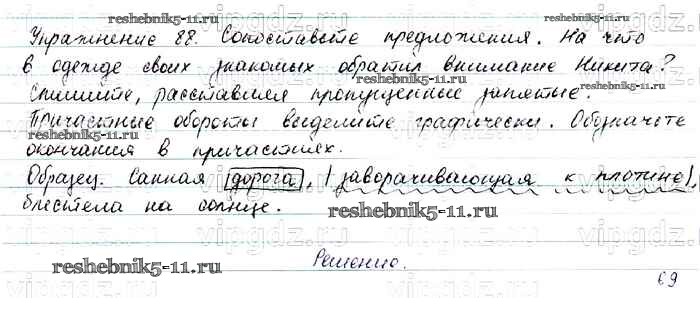 reshebnik5-11.ru
Упражнение 88. Сопоставьте предложения. На что
в одежде своих знакомых обратил внимание Никита?
reshebnik5-11.ru
Спишите, расставляя пропущенные запятые.
Причастные обороты выделите графически. Обозначьте
reshebnik5-11.ru
окончания в причастиях.
Образец. Санная дорога, | заворачивающая к плотине|,
блестела на солнце.
reshebnik5-11.ru
reshebnik5-11.ru
Решение.
69
vipgdz.ru
vipgdz.ru
vipgdz.ru